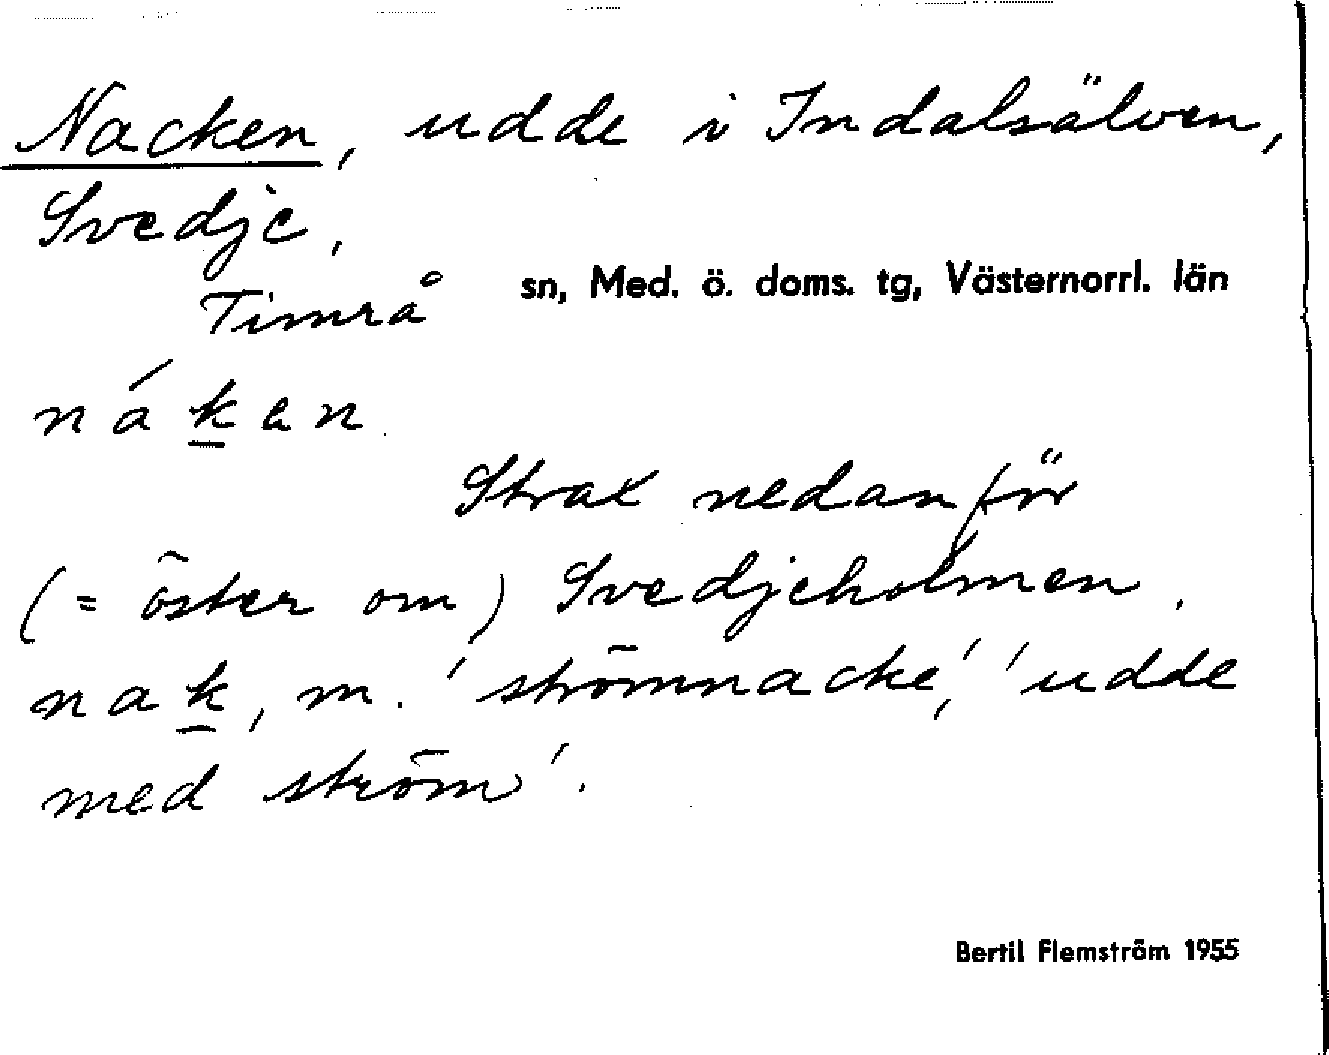 Nacken, udde i Indalsälven,
Svedje,
Timrå sn, Med. ö. doms. tg, Västernorrl. län
nák̲en.
Strax nedanför
(= öster om) Svedjeholmen.
nak̲, m. 'strömnacke', 'udde
med ström'.
Bertil Flemström 1955